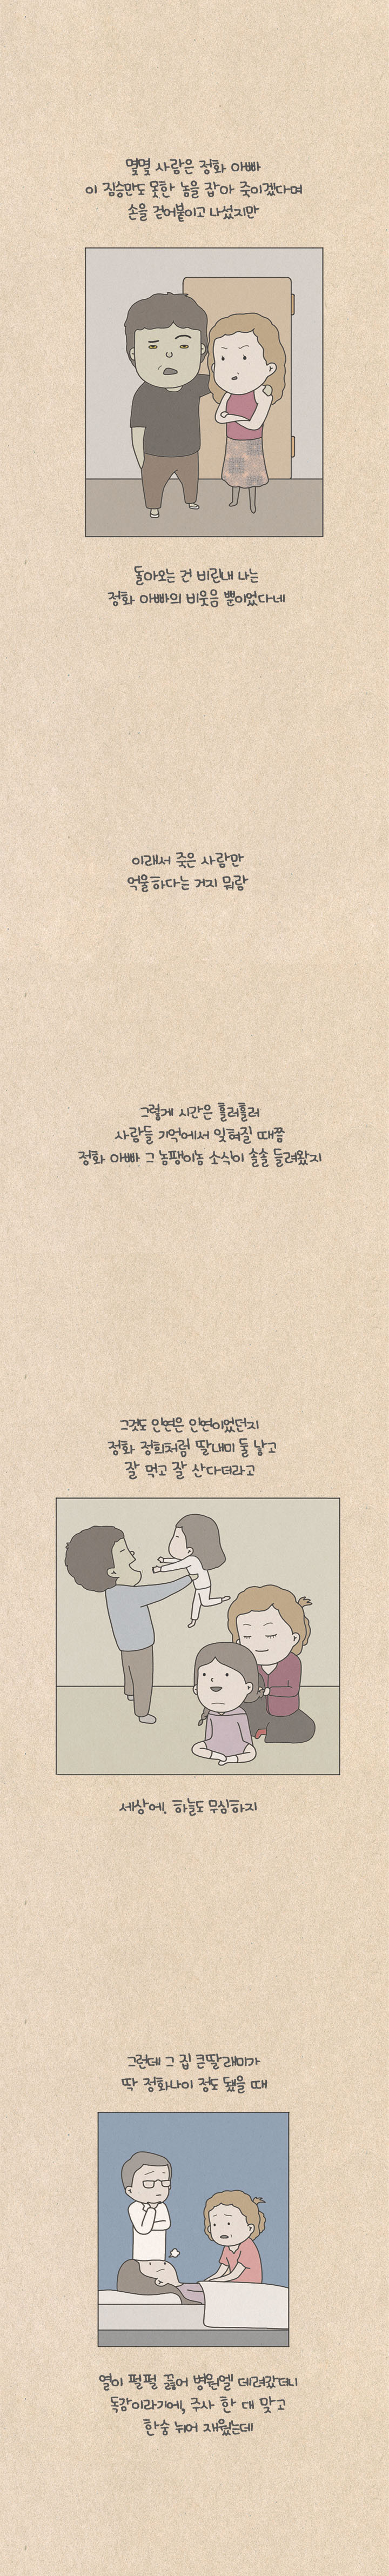 몇몇 사람은 정화 아빠
이 짐승만도 못한 놈을 잡아 죽이겠다며
손을 걷어붙이고 나섰지만
돌아오는 건 비린내 나는
정화 아빠의 비웃음 뿐이었다네
이래서 죽은 사람만
억울하다는 거지 뭐람
그렇게 시간은 흘러흘러
사람들 기억에서 잊혀질 때쯤
정화 아빠 그 놈팽이놈 소식이 솔솔 들려왔지
그것도 인연은 인연이었던지
정화 정희처럼 딸내미 둘 낳고
잘 먹고 잘 산다더라고
세상에. 하늘도 무심하지
그런데 그 집 큰딸래미가
딱 정화나이 정도 됐을 때
열이 펄펄 끓어 병원엘 데려갔더니
독감이라기에, 주사 한 대 맞고
한숨 뉘어 재웠는데